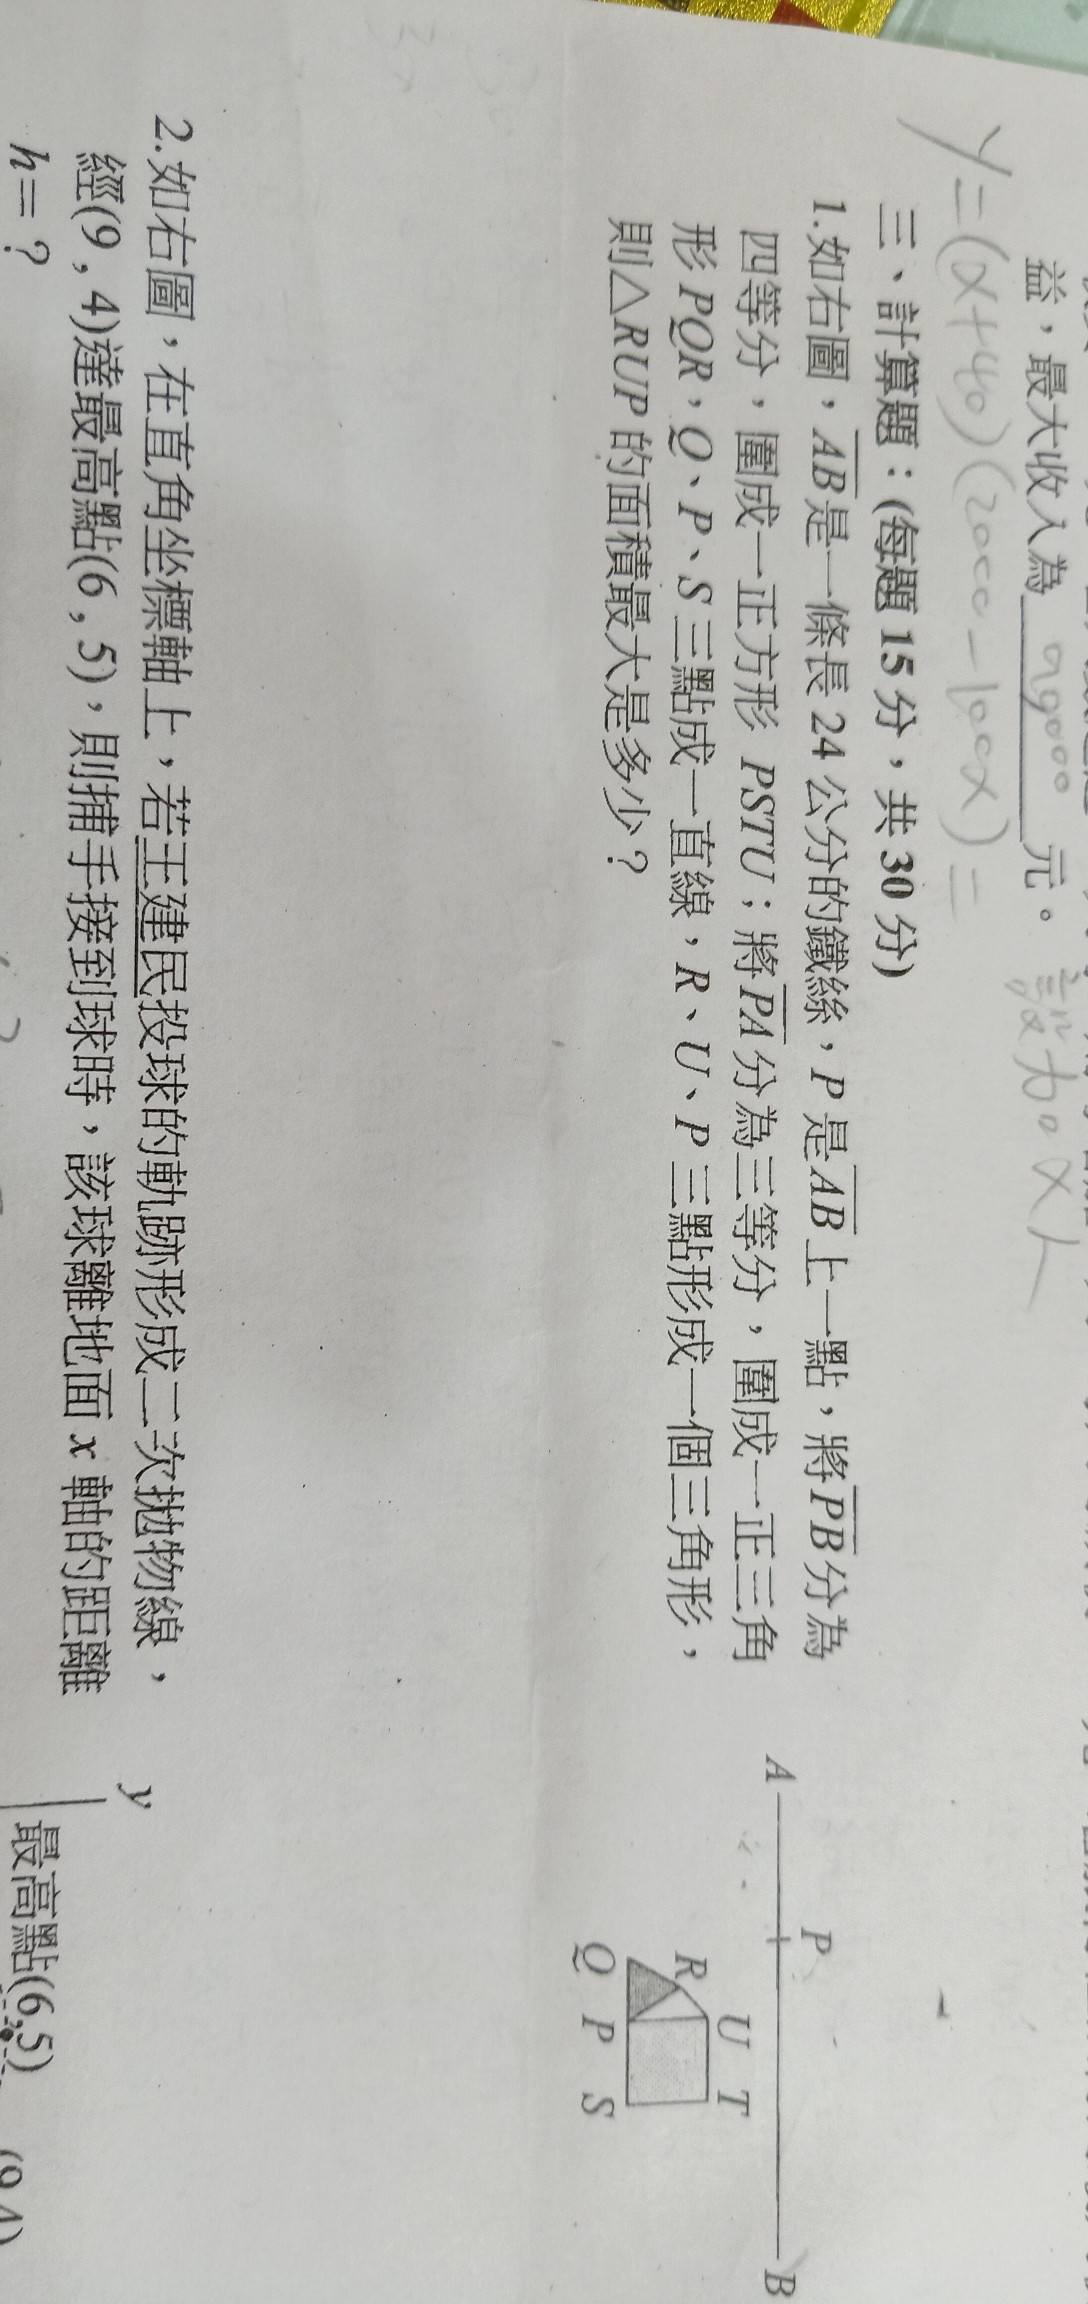 益，最大收入為 元。 設加x人
y=(x+40)(2000-100x)=
三、計算題：(每題15分，共30分)
1.如右圖，AB是一條長24公分的鐵絲，P是AB上一點，將PB分為
四等分，圍成一正方形 PSTU；將PA分為三等分，圍成一正三角
形PQR，Q、P、S三點成一直線，R、U、P三點形成一個三角形，
則△RUP的面積最大是多少？
A P B
U T
R
Q P S
2.如右圖，在直角坐標軸上，若王建民投球的軌跡形成二次拋物線，
經(9,4)達最高點(6,5)，則捕手接到球時，該球離地面x軸的距離
h=？
y
最高點(6,5)